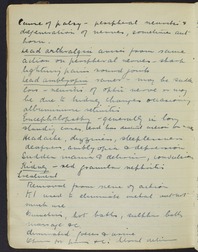 Cause of palsy - peripheral neuritis &
degeneration of nerves, sometimes ant
horn.
Lead arthralgia arises from same
action on peripheral nerves. short
lightning pains round joints
Lead amblyopia - may be such
loss - neuritis of optic nerve or may
be due to kidney changes occasiony
albuminuric retinitis
Encephalopathy - generally in long
standing cases
headache, dizziness, sleeplessness
deafness, amblyopia & depression
Sudden mania & delirium, convulsions
Kidney - set granular nephritis
Treatment
Removal from view of action
KI used to eliminate metal but not
much use
baths, hot baths, sulphur baths
massage etc